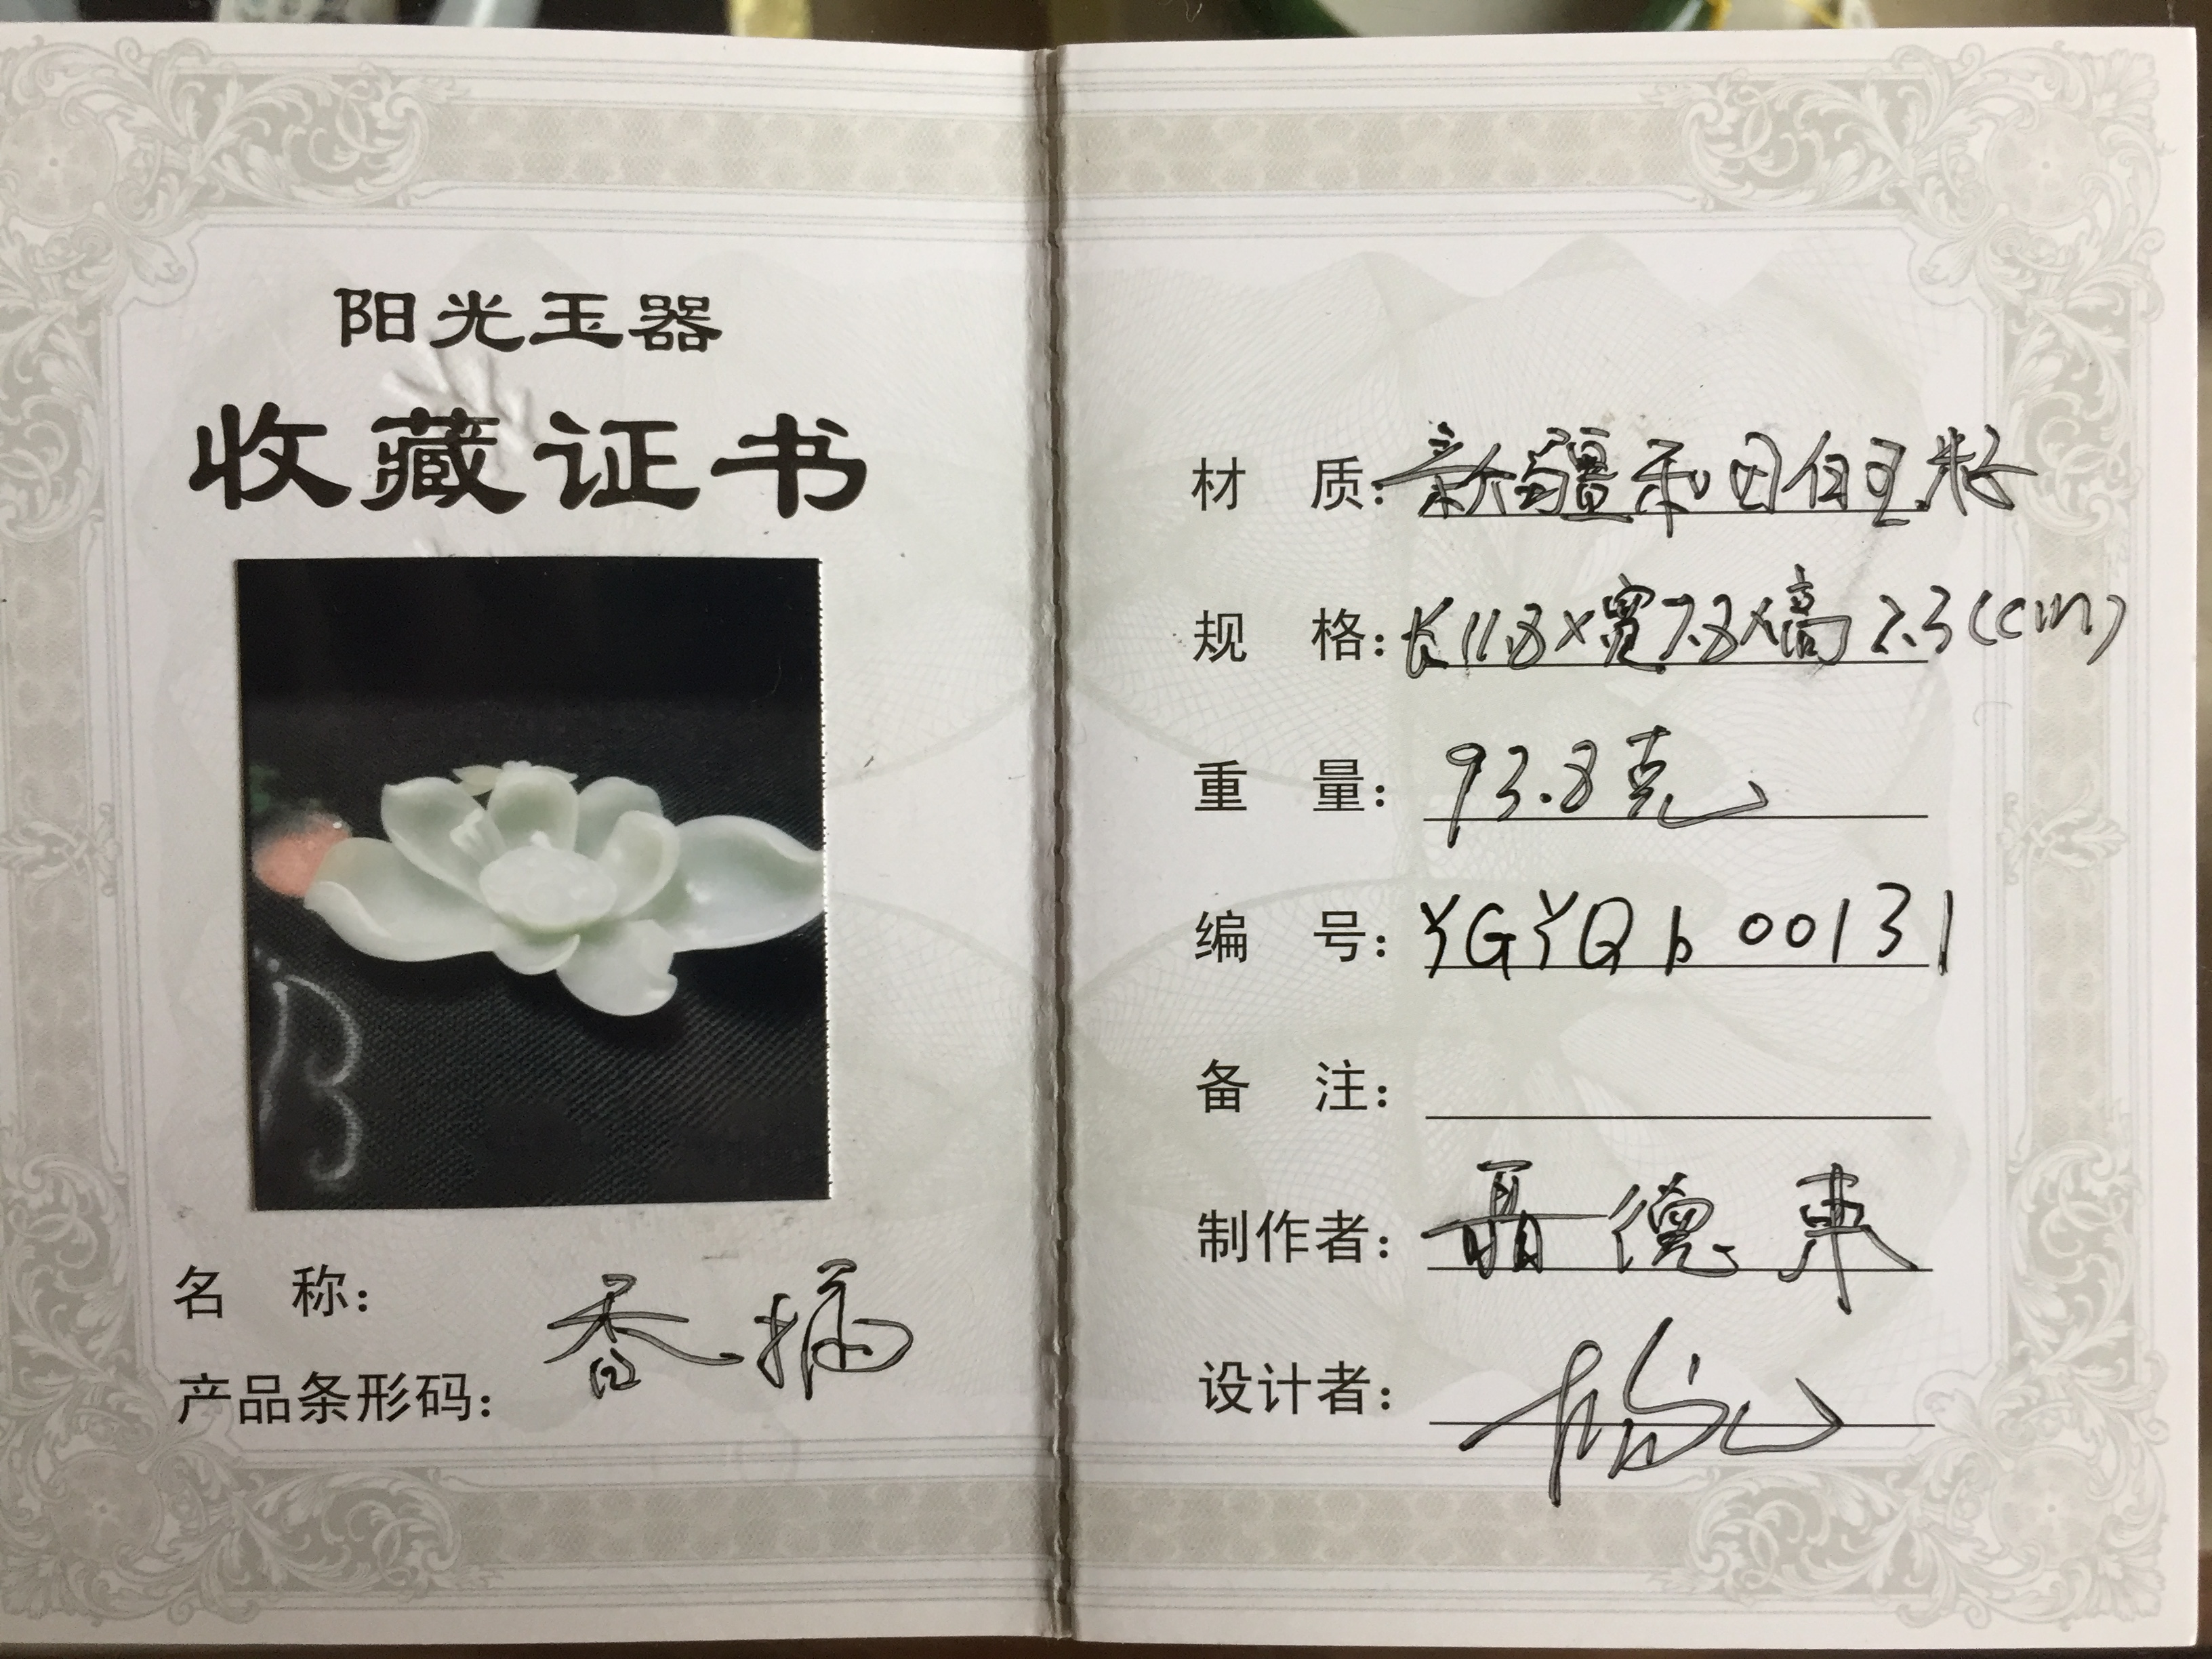 阳光玉器
收藏证书
名 称：香插
产品条形码：
材 质：新疆和田白玉籽
规 格：长11.8×宽7.8×高2.3(cm)
重 量：93.8克
编 号：YGYQb00131
备 注：
制作者：聂德来
设计者：